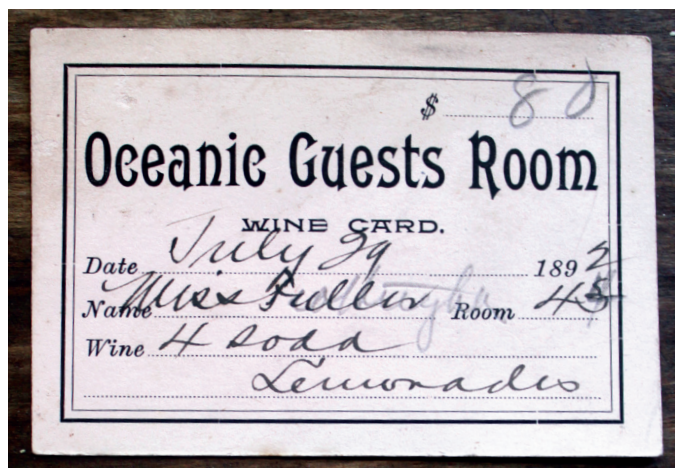 $ 80
Oceanic Guests Room
WINE CARD.
Date July 29 1892
Name Miss Fuller Room 45
Wine 4 soda
Lemonades